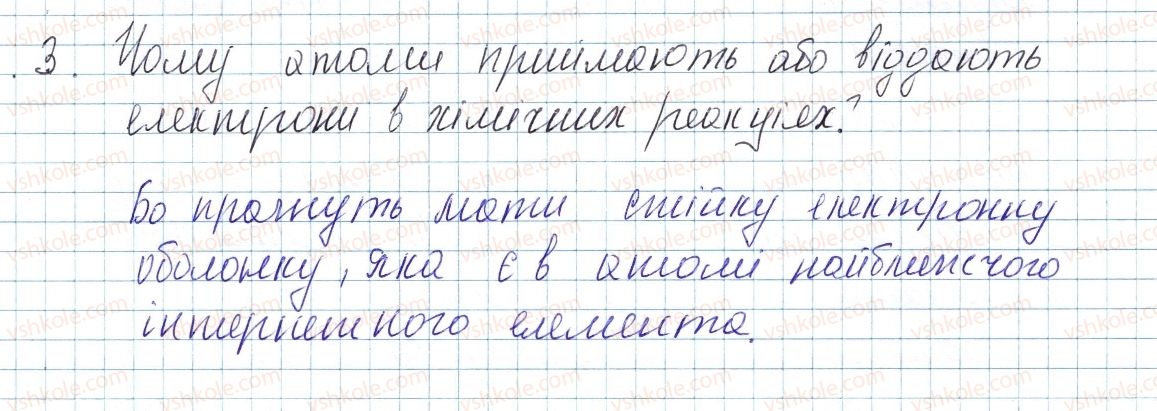 3. Чому атоми приймають або віддають
електрони в хімічних реакціях?
Бо прагнуть мати стійку електронну
оболонку, яка є в атомі найближчого
інтернетного елемента.